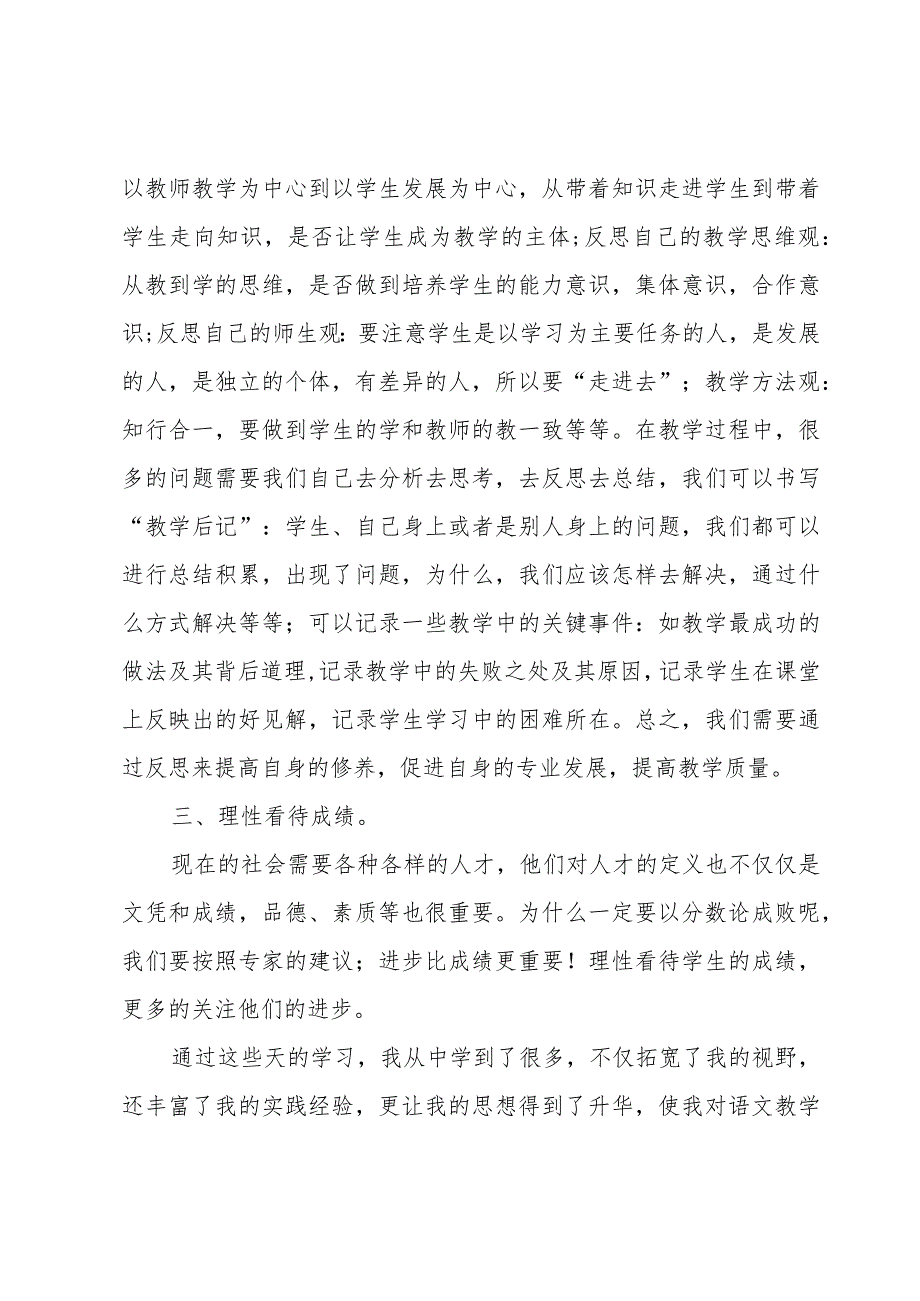 以教师教学为中心到以学生发展为中心，从带着知识走进学生到带着
学生走向知识，是否让学生成为教学的主体;反思自己的教学思维观：
从教到学的思维，是否做到培养学生的能力意识，集体意识，合作意
识;反思自己的师生观：要注意学生是以学习为主要任务的人，是发展
的人，是独立的个体，有差异的人，所以要“走进去”；教学方法观：
知行合一，要做到学生的学和教师的教一致等等。在教学过程中，很
多的问题需要我们自己去分析去思考，去反思去总结，我们可以书写
“教学后记”：学生、自己身上或者是别人身上的问题，我们都可以
进行总结积累，出现了问题，为什么，我们应该怎样去解决，通过什
么方式解决等等；可以记录一些教学中的关键事件：如教学最成功的
做法及其背后道理,记录教学中的失败之处及其原因，记录学生在课堂
上反映出的好见解，记录学生学习中的困难所在。总之，我们需要通
过反思来提高自身的修养，促进自身的专业发展，提高教学质量。
三、理性看待成绩。
现在的社会需要各种各样的人才，他们对人才的定义也不仅仅是
文凭和成绩，品德、素质等也很重要。为什么一定要以分数论成败呢，
我们要按照专家的建议；进步比成绩更重要！理性看待学生的成绩，
更多的关注他们的进步。
通过这些天的学习，我从中学到了很多，不仅拓宽了我的视野，
还丰富了我的实践经验，更让我的思想得到了升华，使我对语文教学